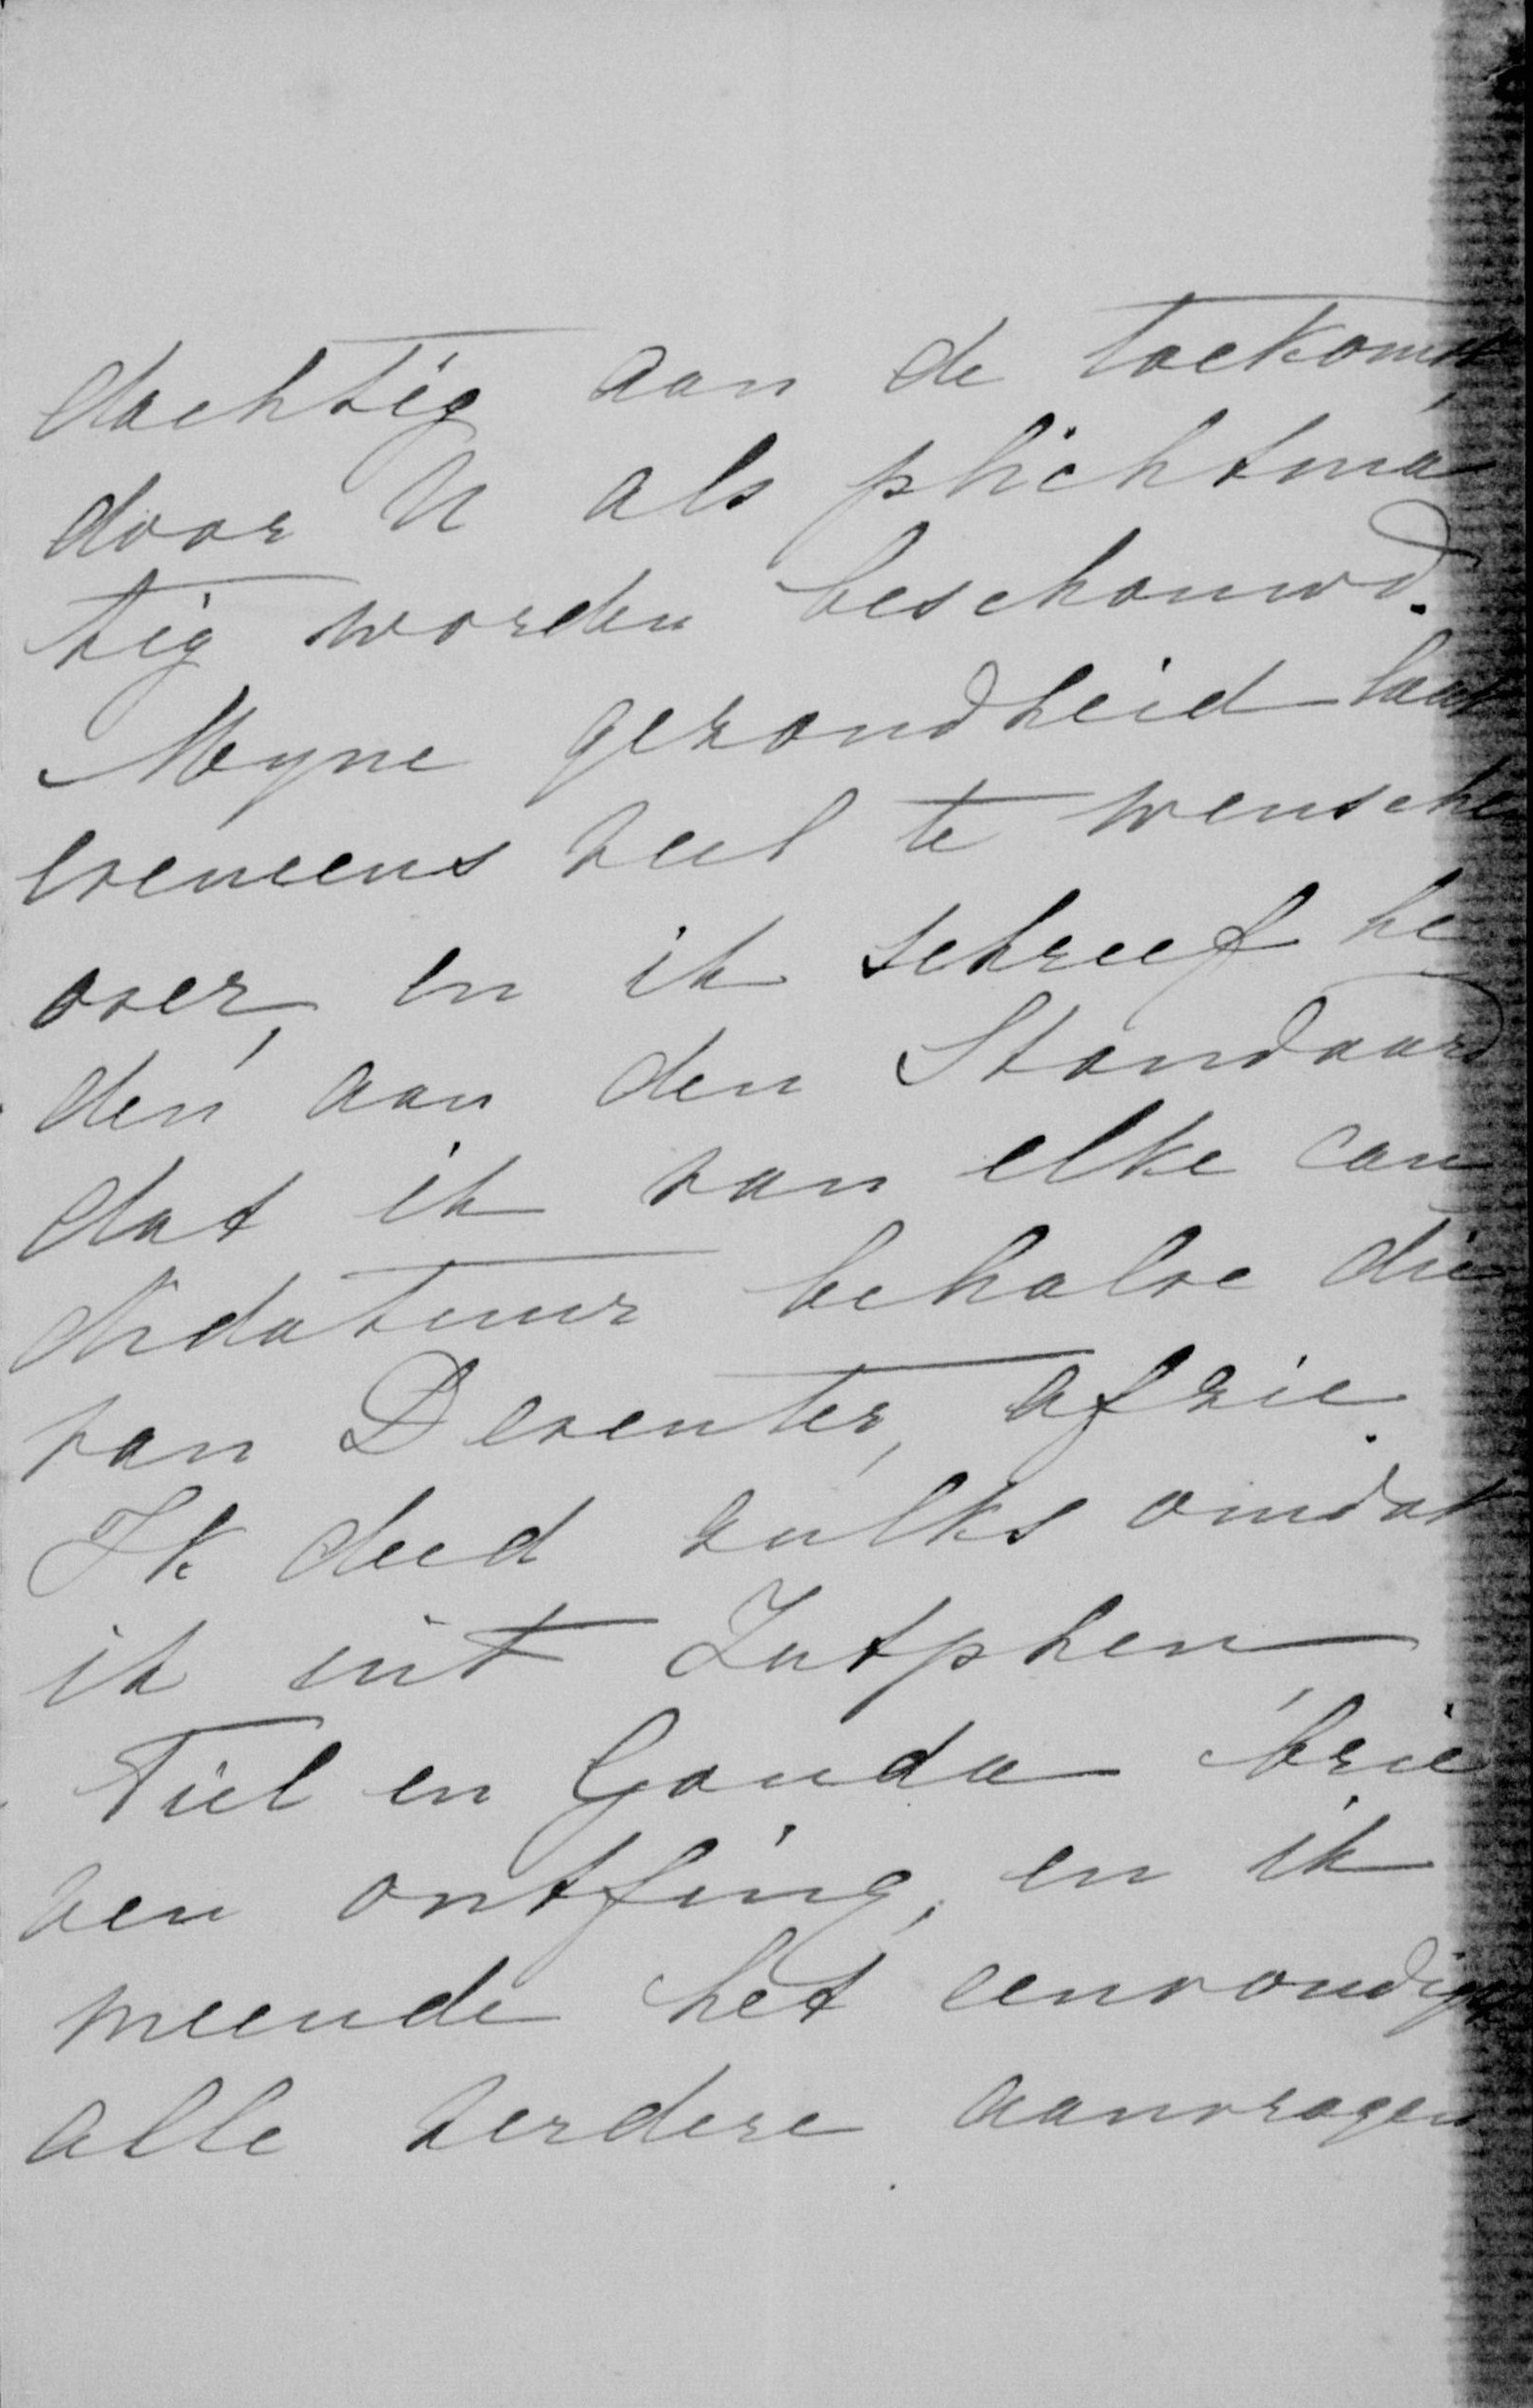 dachtig aan de toekomst,
door U als plichtma
tig worden beschouwd.
Myne gezondheid laat
eveneens veel te wenschen
over, en ik schreef he
den aan den Standaard
dat ik van elke can
didatuur behalve die
van Deventer, afzie.
Ik deed zulks omdat
ik uit Zutphen
Tiel en Gouda brie
ven ontfing, en ik
meende het eenvoudigst
alle verdere aanvragen